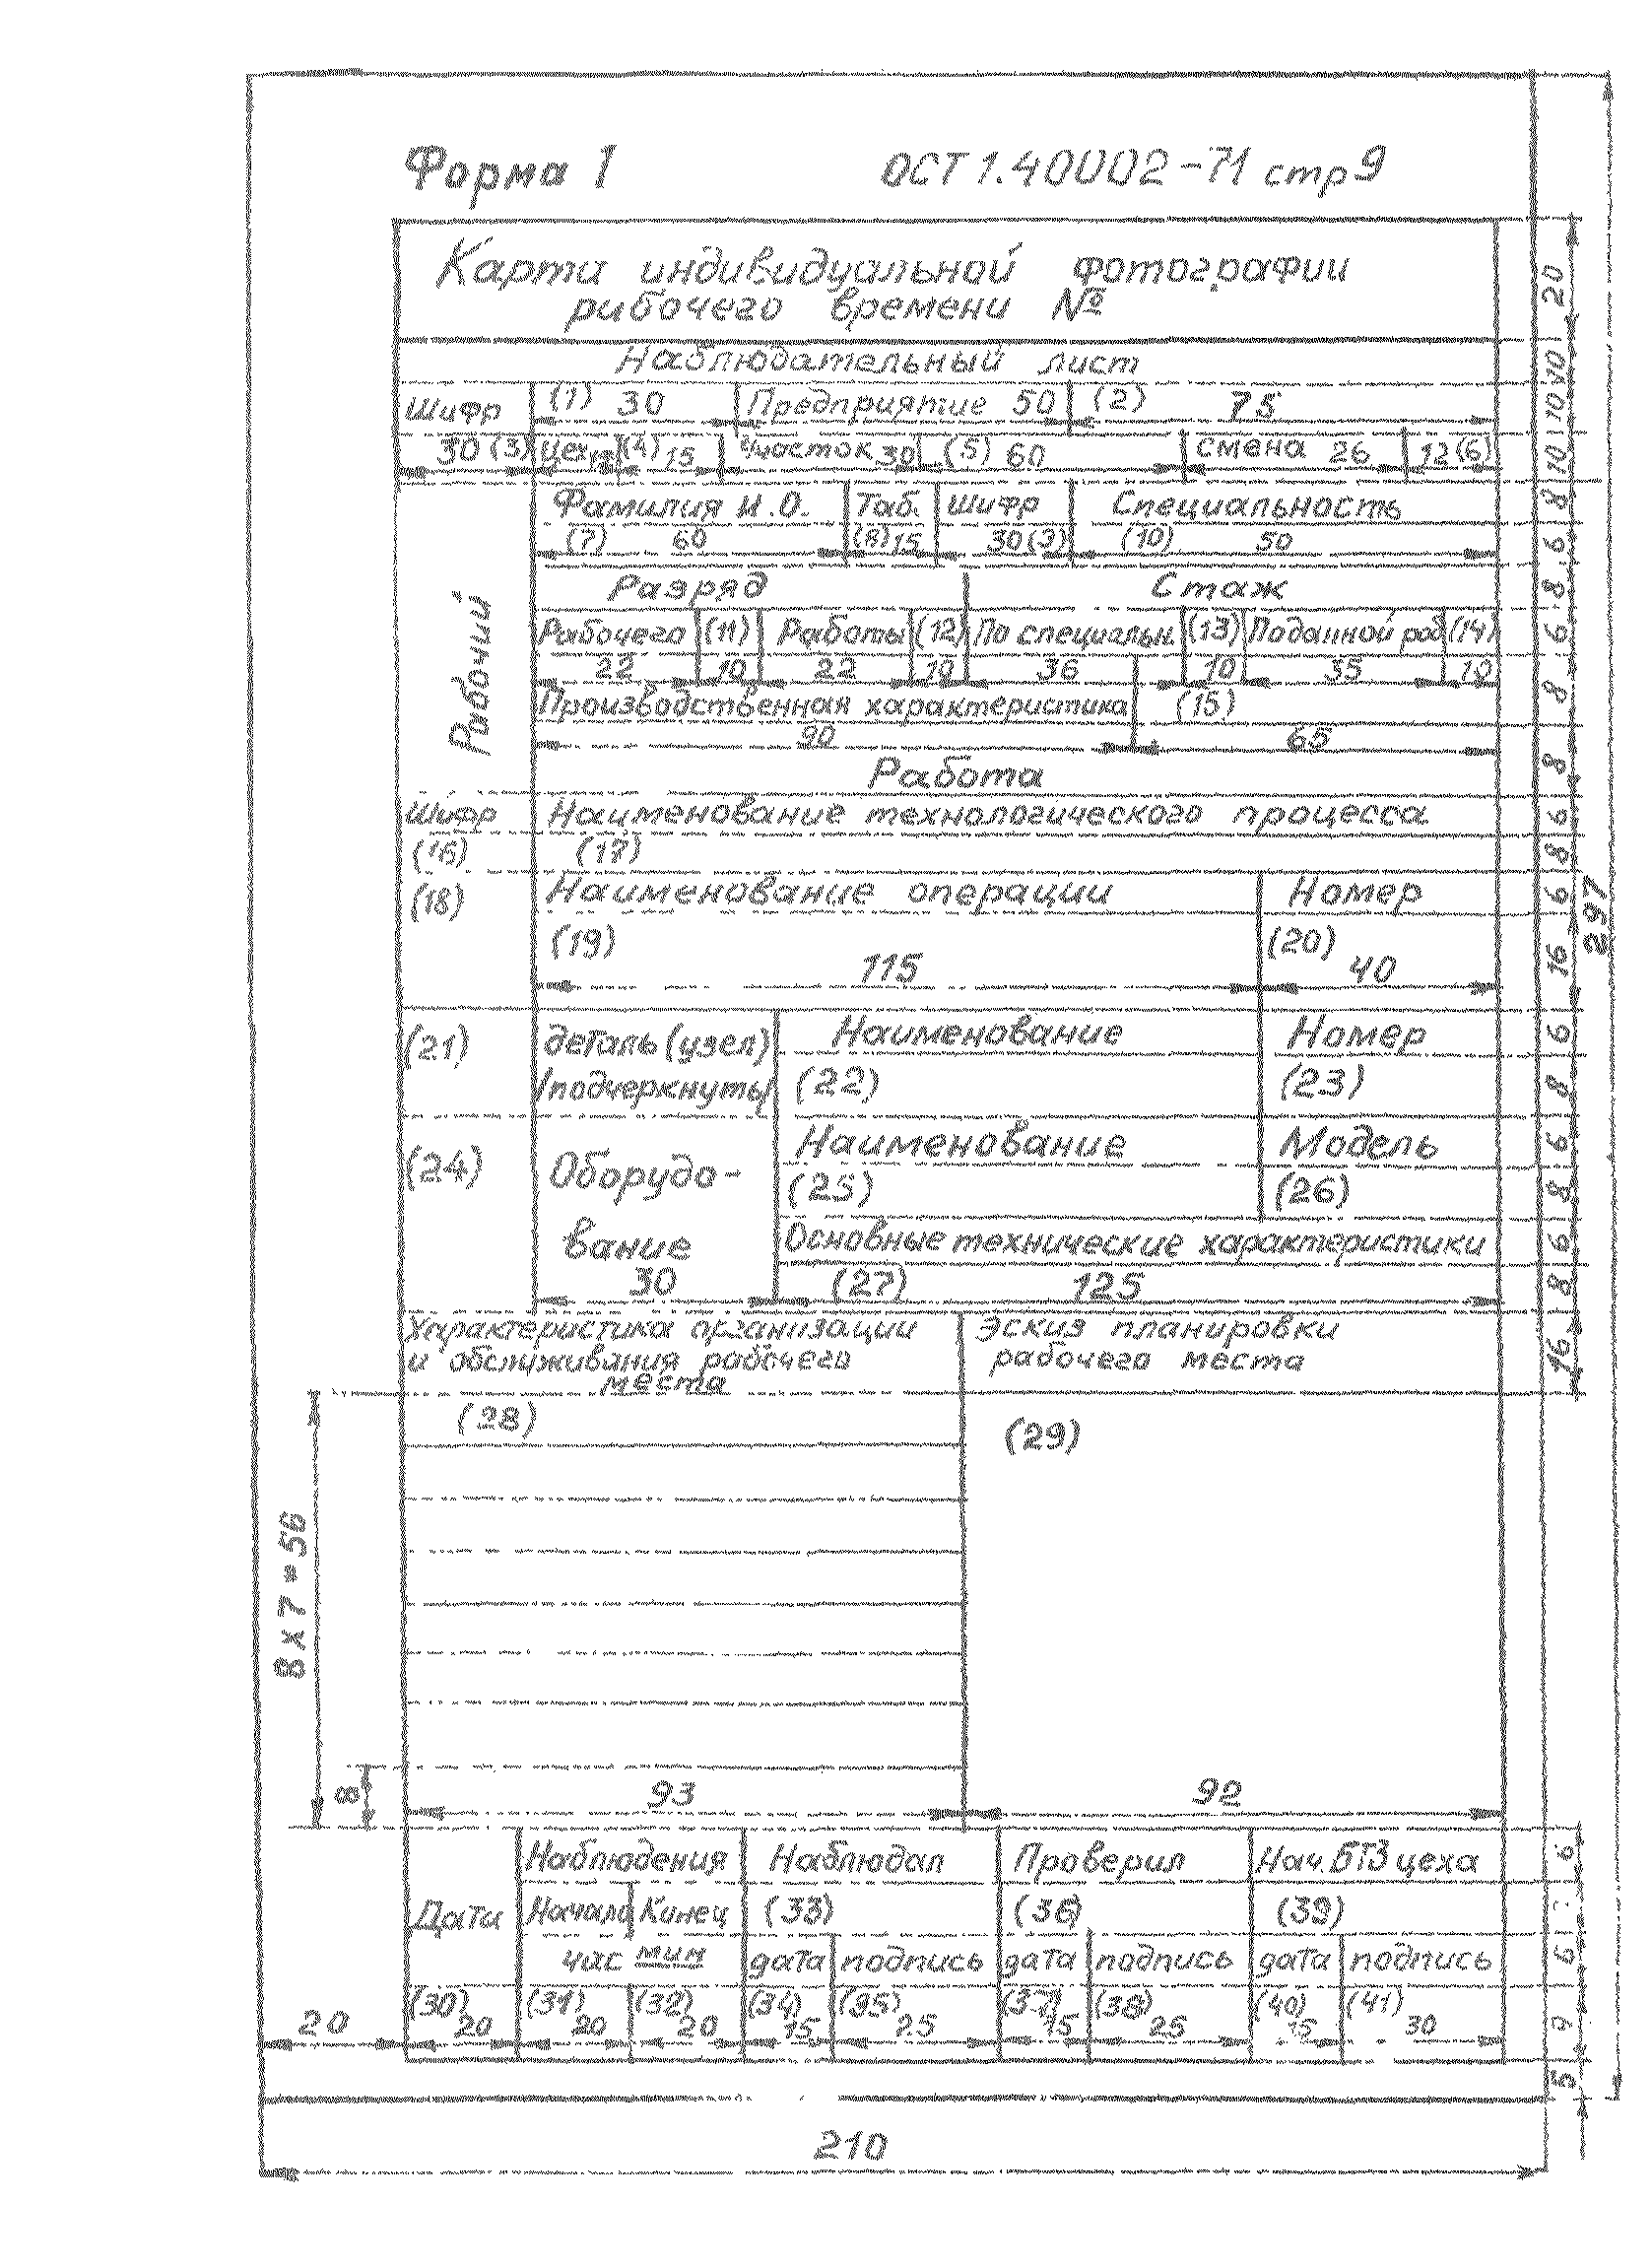 Форма 1 ОСТ 1.40002-71 стр 9
Карта индивидуальной фотографии
рабочего времени №
20
Наблюдательный лист
10
Шифр (1) 30 Предприятие 50 (2) 75
10
30 (3) Цех (4) 15 Участок 30 (5) 60 смена 26 12 (6)
10
Фамилия И.О. Таб. Шифр Специальность
8
(7) 60 (8) 15 30 (3) (10) 50
6
Рабочий
Разряд Стаж
8
Рабочего (11) Работы (12) По специальн. (13) По данной раб (14)
6
22 10 22 10 36 10 35 10
Производственная характеристика (15)
8
90 65
Работа
8
Шифр Наименование технологического процесса
6
(16) (17)
8
(18) Наименование операции Номер
6
297
(19) (20)
115 40
16
(21) деталь (узел) Наименование Номер
6
/подчеркнуть/ (22) (23)
8
(24) Оборудо- Наименование Модель
6
(25) (26)
8
вание Основные технические характеристики
6
30 (27) 125
8
Характеристика организации Эскиз планировки
и обслуживания рабочего рабочего места
места
16
(28) (29)
8 x 7 = 56
8
93 92
Наблюдения Наблюдал Проверил Нач. БТЗ цеха
6
Дата Начало Кинец (33) (36) (39)
час мин дата подпись дата подпись дата подпись
6
(30) (31) (32) (34) (35) (37) (38) (40) (41)
20 20 20 20 15 25 15 25 15 30
9
5
210